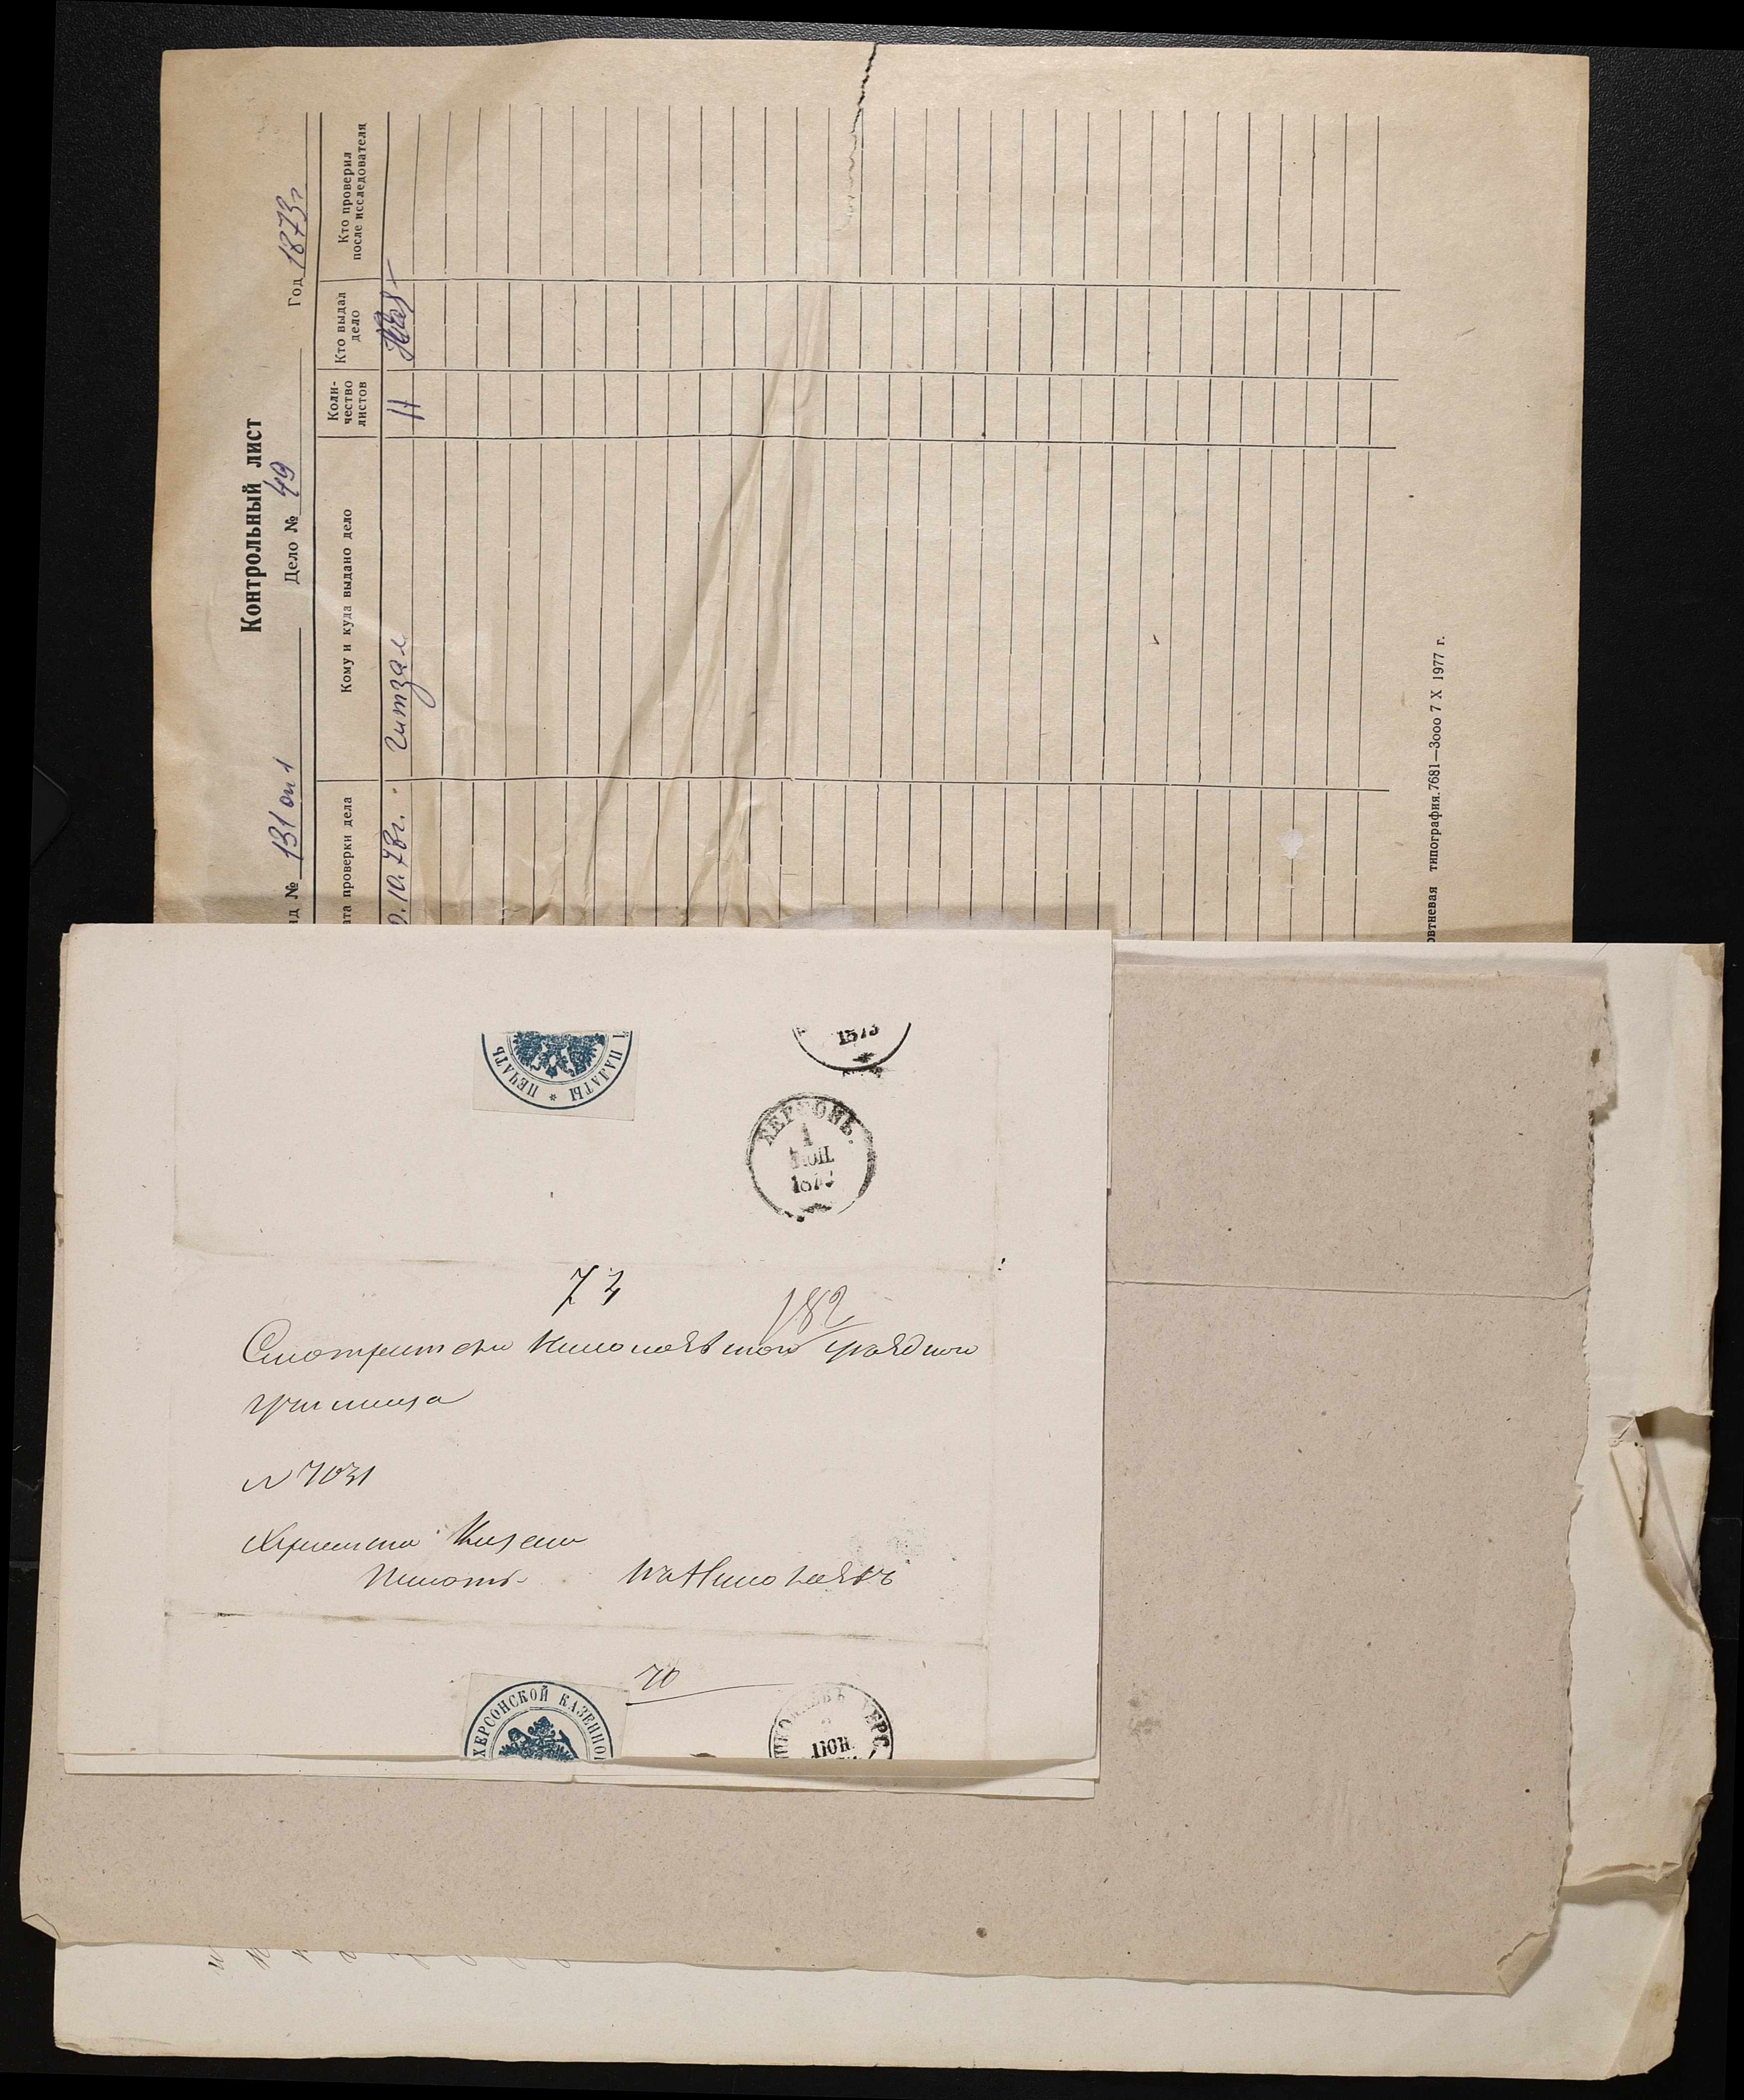 Контрольный лист
нд № 131 оп 1 Дело № 49 Год 1873 г
ата проверки дела
Кому и куда выдано дело
Коли-
чество
листов
Кто выдал
дело
Кто проверил
после исследователя
9.10.78г. Читзал 11
овтневая типография.7681—3000 7 X 1977 г.
ПАЛАТЫ * ПЕЧАТЬ
1873
ХЕРСОНЪ.
1
ІЮН.
187
74
182
Смотрителю Николаевского уѣздного
училища
N 7031
Херсонская Казен.
Палата. Въ Николаевъ
70
ХЕРСОНСКОЙ КАЗЕННОЙ
НИКОЛАЕВЪ ХЕРС.
2
ІЮН.